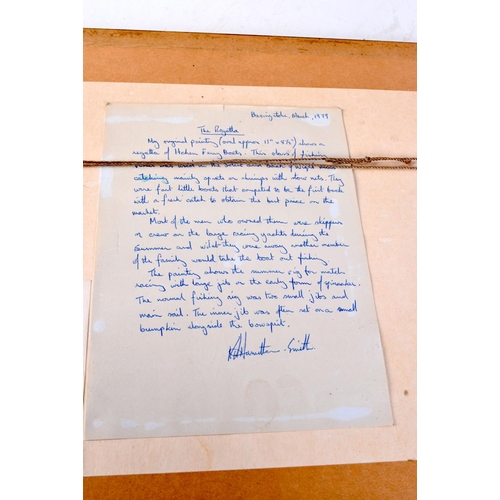 Basingstoke, March, 1978
The Regatta
My original painting (oval approx 11" x 8½") shows a
regatta of Itchen Ferry Boats. This class of fishing
catching mainly sprats or shrimps with stow nets. They
were fast little boats that competed to be the first back
with a fresh catch to obtain the best price on the
market.
Most of the men who owned them were skippers
or crew on the large racing yachts during the
summer and whilst they were away another member
of the family would take the boat out fishing.
The painting shows the summer rig for match
racing with large jib or the early form of spinnaker.
The normal fishing rig was two small jibs and
main sail. The inner jib was often set on a small
bumpkin alongside the bowsprit.
Hamilton-Smith